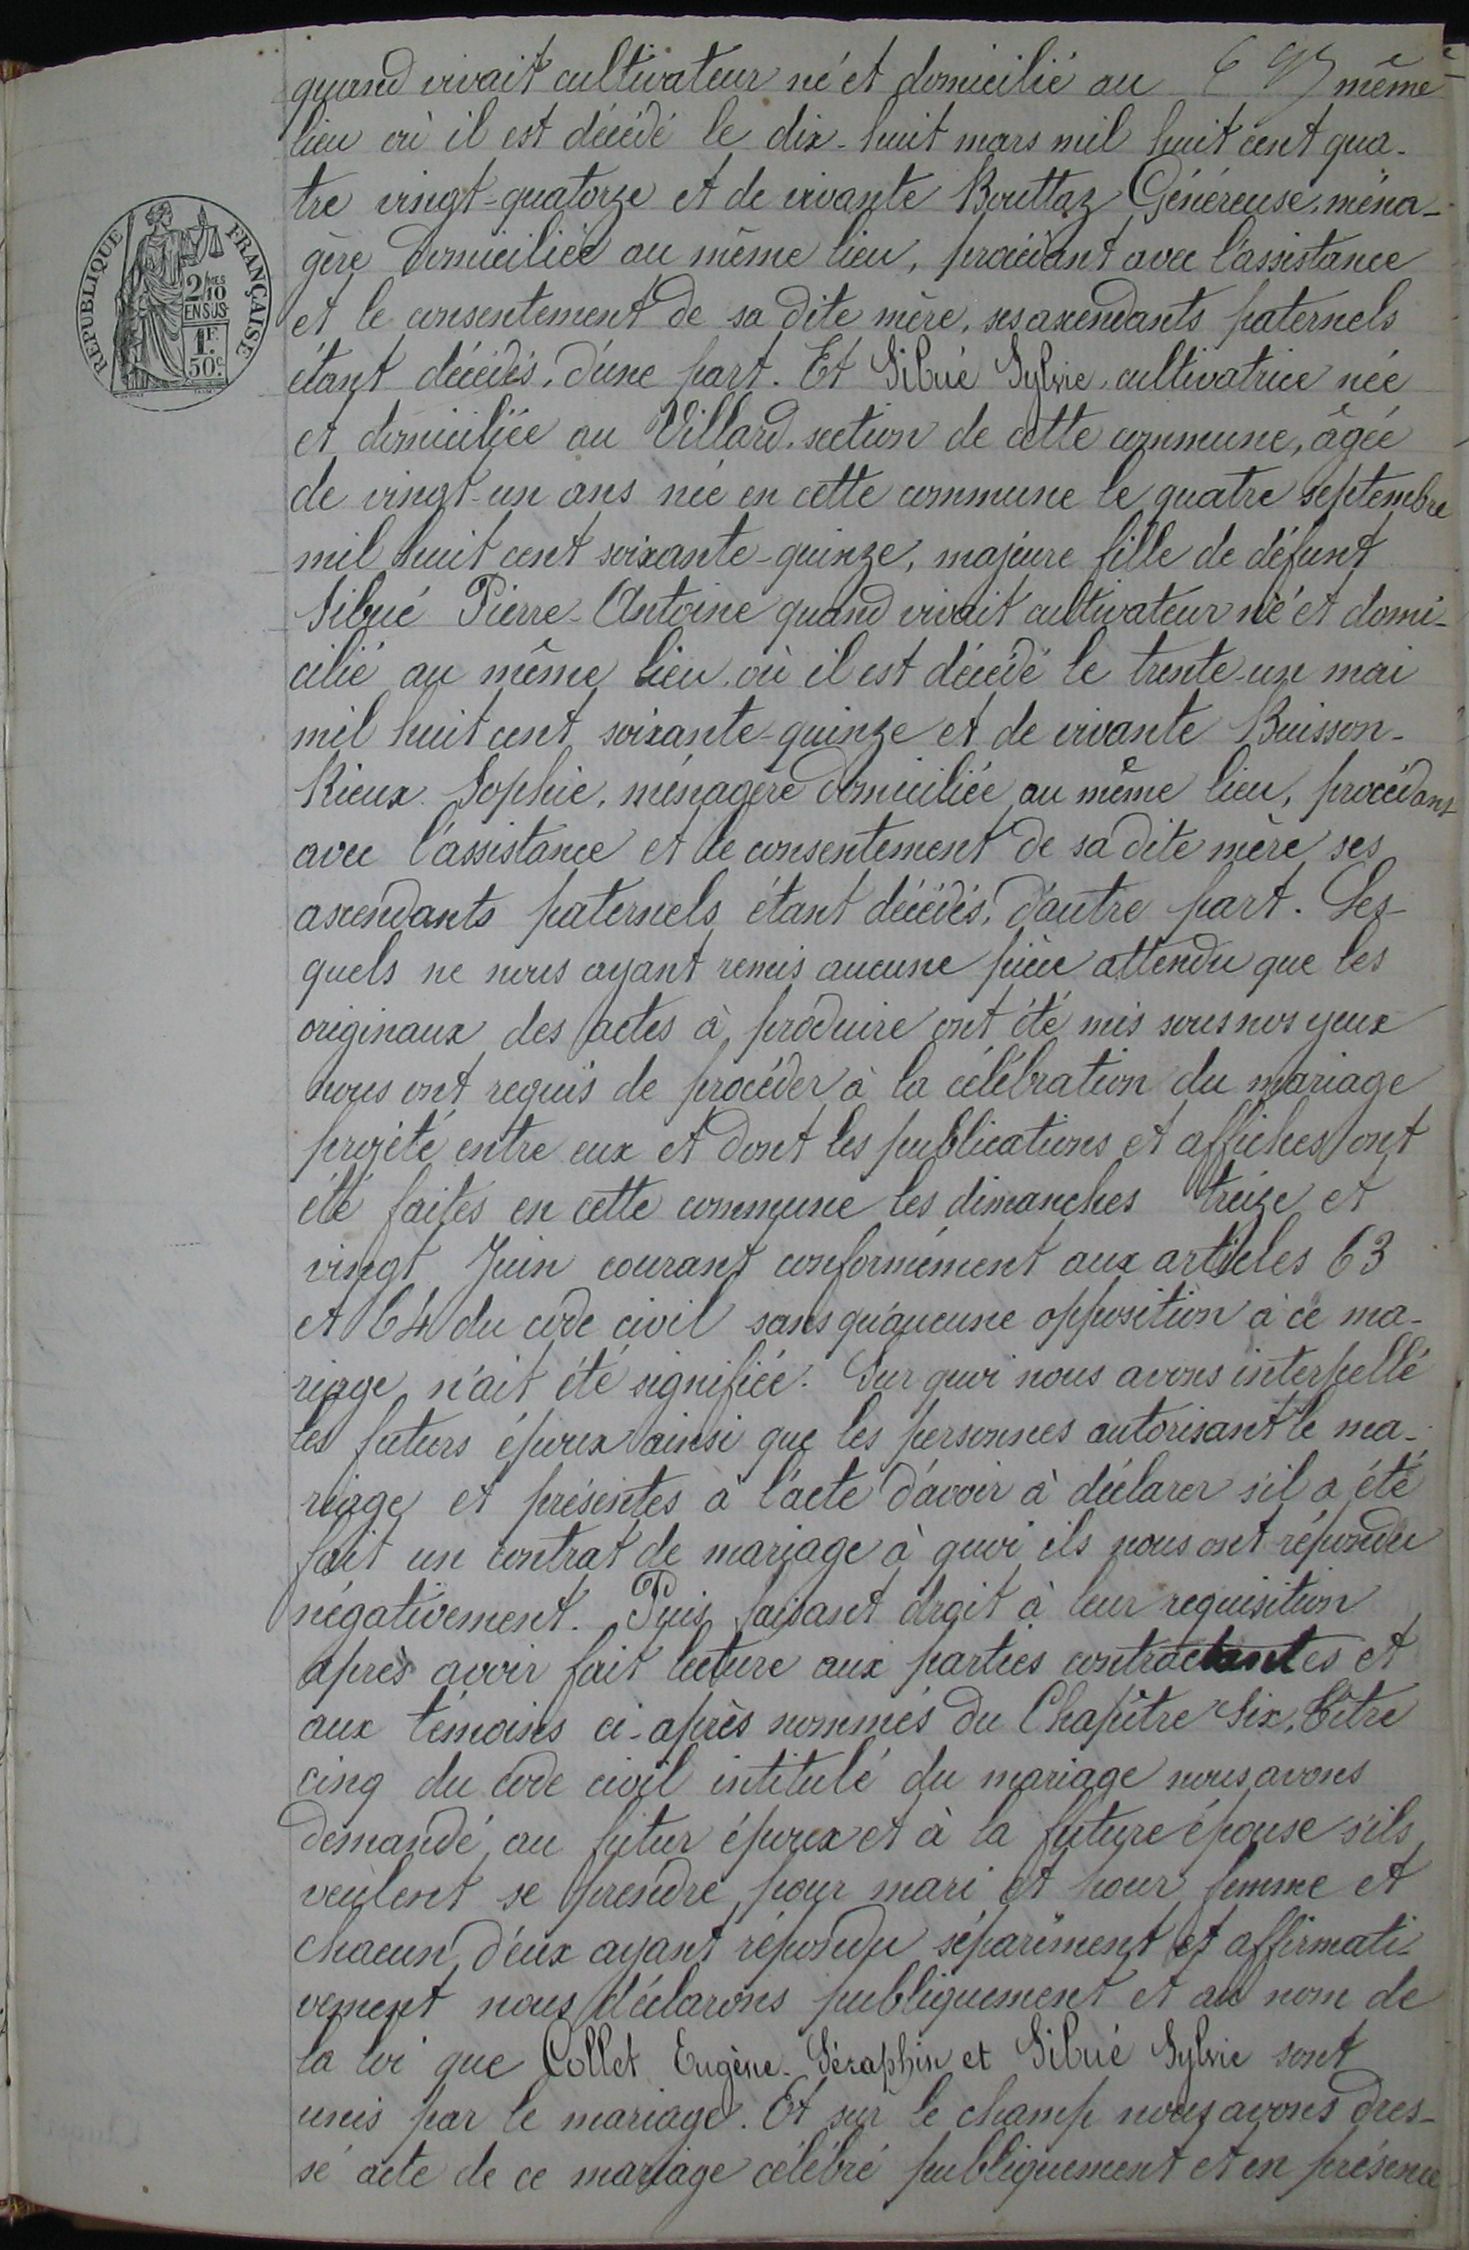 quand vivait cultivateur né et domicilié au même
lieu où il est décédé le dix-huit mars mil huit cent qua-
tre vingt-quatorze et de vivante Bouttaz Généreuse, ména-
gère domiciliée au même lieu, procédant avec l'assistance
et le consentement de sa dite mère, ses ascendants paternels
étant décédés, d'une part. Et Sibué Sylvie, cultivatrice née
et domiciliée au Villard, section de cette commune, âgée
de vingt-un ans née en cette commune le quatre septembre
mil huit cent soixante-quinze, majeure fille de défunt
Sibué Pierre-Antoine quand vivait cultivateur né et domi-
cilié au même lieu où il est décédé le trente-un mai
mil huit cent soixante-quinze et de vivante Buisson-
Rieux Sophie, ménagère domiciliée au même lieu, procédant
avec l'assistance et le consentement de sa dite mère ses
ascendants paternels étant décédés, d'autre part. Les-
quels ne nous ayant remis aucune pièce attendu que les
originaux des actes à produire ont été mis sous nos yeux
nous ont requis de procéder à la célébration du mariage
projété entre eux et dont les publications et affiches ont
été faites en cette commune les dimanches treize et
vingt Juin courant conformément aux articles 63
et 64 du code civil sans qu'aucune opposition à ce ma-
riage n'ait été signifiée. Sur quoi nous avons interpellé
les futurs époux ainsi que les personnes autorisant le ma-
riage et présentes à l'acte d'avoir à déclarer s'il a été
fait un contrat de mariage à quoi ils nous ont répondu
négativement. Puis faisant droit à leur requisition
après avoir fait lecture aux parties contractantes et
aux témoins ci-après nommés du Chapître Six, titre
cinq du code civil intitulé du mariage nous avons
demandé au futur époux et à la future épouse s'ils
veulent se prendre pour mari et pour femme et
chacun d'eux ayant répondu séparément et affirmati-
vement nous déclarons publiquement et au nom de
la loi que Collet Eugène-Séraphin et Sibué Sylvie sont
unis par le mariage. Et sur le champ nous avons dres-
sé acte de ce mariage célébré publiquement et en présence
RÉPUBLIQUE FRANÇAISE
2/10 MES
EN SUS
1F.
50c.